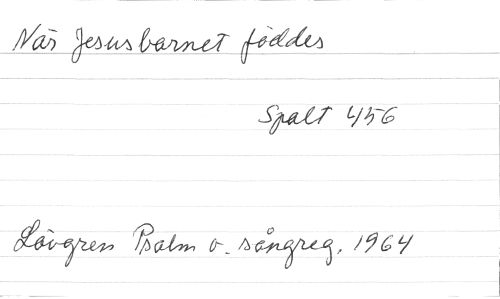 När Jesusbarnet föddes
Spalt 456
Lövgren Psalm o. sångreg. 1964